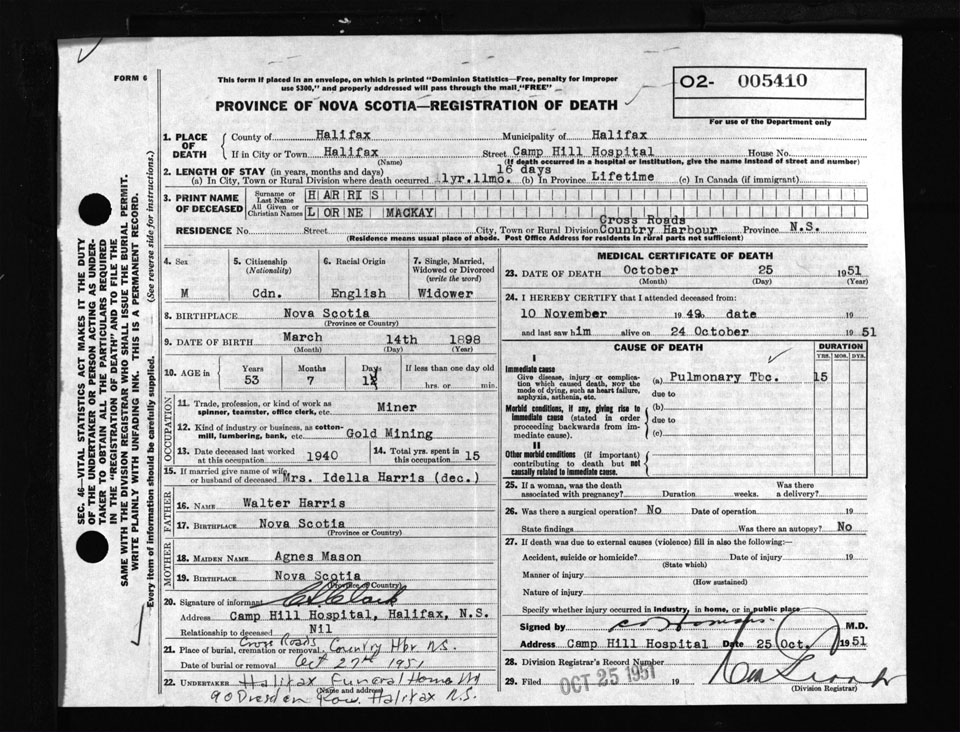 FORM 6
This form if placed in an envelope, on which is printed "Dominion Statistics—Free, penalty for improper
use $300," and properly addressed will pass through the mail "FREE"
O2- 005410
For use of the Department only
PROVINCE OF NOVA SCOTIA—REGISTRATION OF DEATH
1. PLACE OF DEATH County of Halifax Municipality of Halifax
If in City or Town Halifax Street Camp Hill Hospital House No.
(Name) (If death occurred in a hospital or institution, give the name instead of street and number)
2. LENGTH OF STAY (in years, months and days) 16 days
(a) In City, Town or Rural Division where death occurred 1yr.11mo. (b) In Province Lifetime (c) In Canada (if immigrant)
3. PRINT NAME OF DECEASED Surname or Last Name HARRIS
All Given or Christian Names LORNE MACKAY
Cross Roads
RESIDENCE No. Street City, Town or Rural Division Country Harbour Province N.S.
(Residence means usual place of abode. Post Office Address for residents in rural parts not sufficient)
4. Sex M
5. Citizenship (Nationality) Cdn.
6. Racial Origin English
7. Single, Married, Widowed or Divorced (write the word) Widower
8. BIRTHPLACE Nova Scotia
(Province or Country)
9. DATE OF BIRTH March 14th 1898
(Month) (Day) (Year)
10. AGE in Years Months Days If less than one day old
53 7 hrs. or min.
OCCUPATION
11. Trade, profession, or kind of work as spinner, teamster, office clerk, etc. Miner
12. Kind of industry or business, as cotton-mill, lumbering, bank, etc. Gold Mining
13. Date deceased last worked at this occupation 1940
14. Total yrs. spent in this occupation 15
15. If married give name of wife or husband of deceased Mrs. Idella Harris (dec.)
FATHER
16. NAME Walter Harris
17. BIRTHPLACE Nova Scotia
(Province or Country)
MOTHER
18. MAIDEN NAME Agnes Mason
19. BIRTHPLACE Nova Scotia
(Province or Country)
20. Signature of informant
Address Camp Hill Hospital, Halifax, N.S.
Relationship to deceased Nil
Cross Roads
21. Place of burial, cremation or removal Country Hbr. N.S.
Date of burial or removal Oct 27th 1951
22. UNDERTAKER Halifax Funeral Home Ltd
(Name and address)
90 Dresden Row. Halifax N.S.
MEDICAL CERTIFICATE OF DEATH
23. DATE OF DEATH October 25 1951
(Month) (Day) (Year)
24. I HEREBY CERTIFY that I attended deceased from:
10 November 1949 date 19
and last saw him alive on 24 October 1951
CAUSE OF DEATH
DURATION
YRS. MOS. DYS.
I
Immediate cause
Give disease, injury or complication which caused death, NOT the mode of dying, such as heart failure, asphyxia, asthenia, etc.
(a) Pulmonary Tbc. 15
due to
Morbid conditions, if any, giving rise to immediate cause (stated in order proceeding backwards from immediate cause).
(b)
due to
(c)
II
Other morbid conditions (if important) contributing to death but not causally related to immediate cause.
25. If a woman, was the death associated with pregnancy? Duration weeks. Was there a delivery?
26. Was there a surgical operation? No Date of operation 19
State findings Was there an autopsy? No
27. If death was due to external causes (violence) fill in also the following:—
Accident, suicide or homicide? Date of injury 19
(State which)
Manner of injury
(How sustained)
Nature of injury
Specify whether injury occurred in industry, in home, or in public place
Signed by M.D.
Address Camp Hill Hospital Date 25 Oct. 1951
28. Division Registrar's Record Number
29. Filed OCT 25 1951 19
(Division Registrar)
SEC. 46—VITAL STATISTICS ACT MAKES IT THE DUTY
OF THE UNDERTAKER OR PERSON ACTING AS UNDER-
TAKER TO OBTAIN ALL THE PARTICULARS REQUIRED
IN THE "REGISTRATION OF DEATH" AND TO FILE THE
SAME WITH THE DIVISION REGISTRAR WHO SHALL ISSUE THE BURIAL PERMIT.
WRITE PLAINLY WITH UNFADING INK. THIS IS A PERMANENT RECORD.
Every item of information should be carefully supplied. (See reverse side for instructions.)